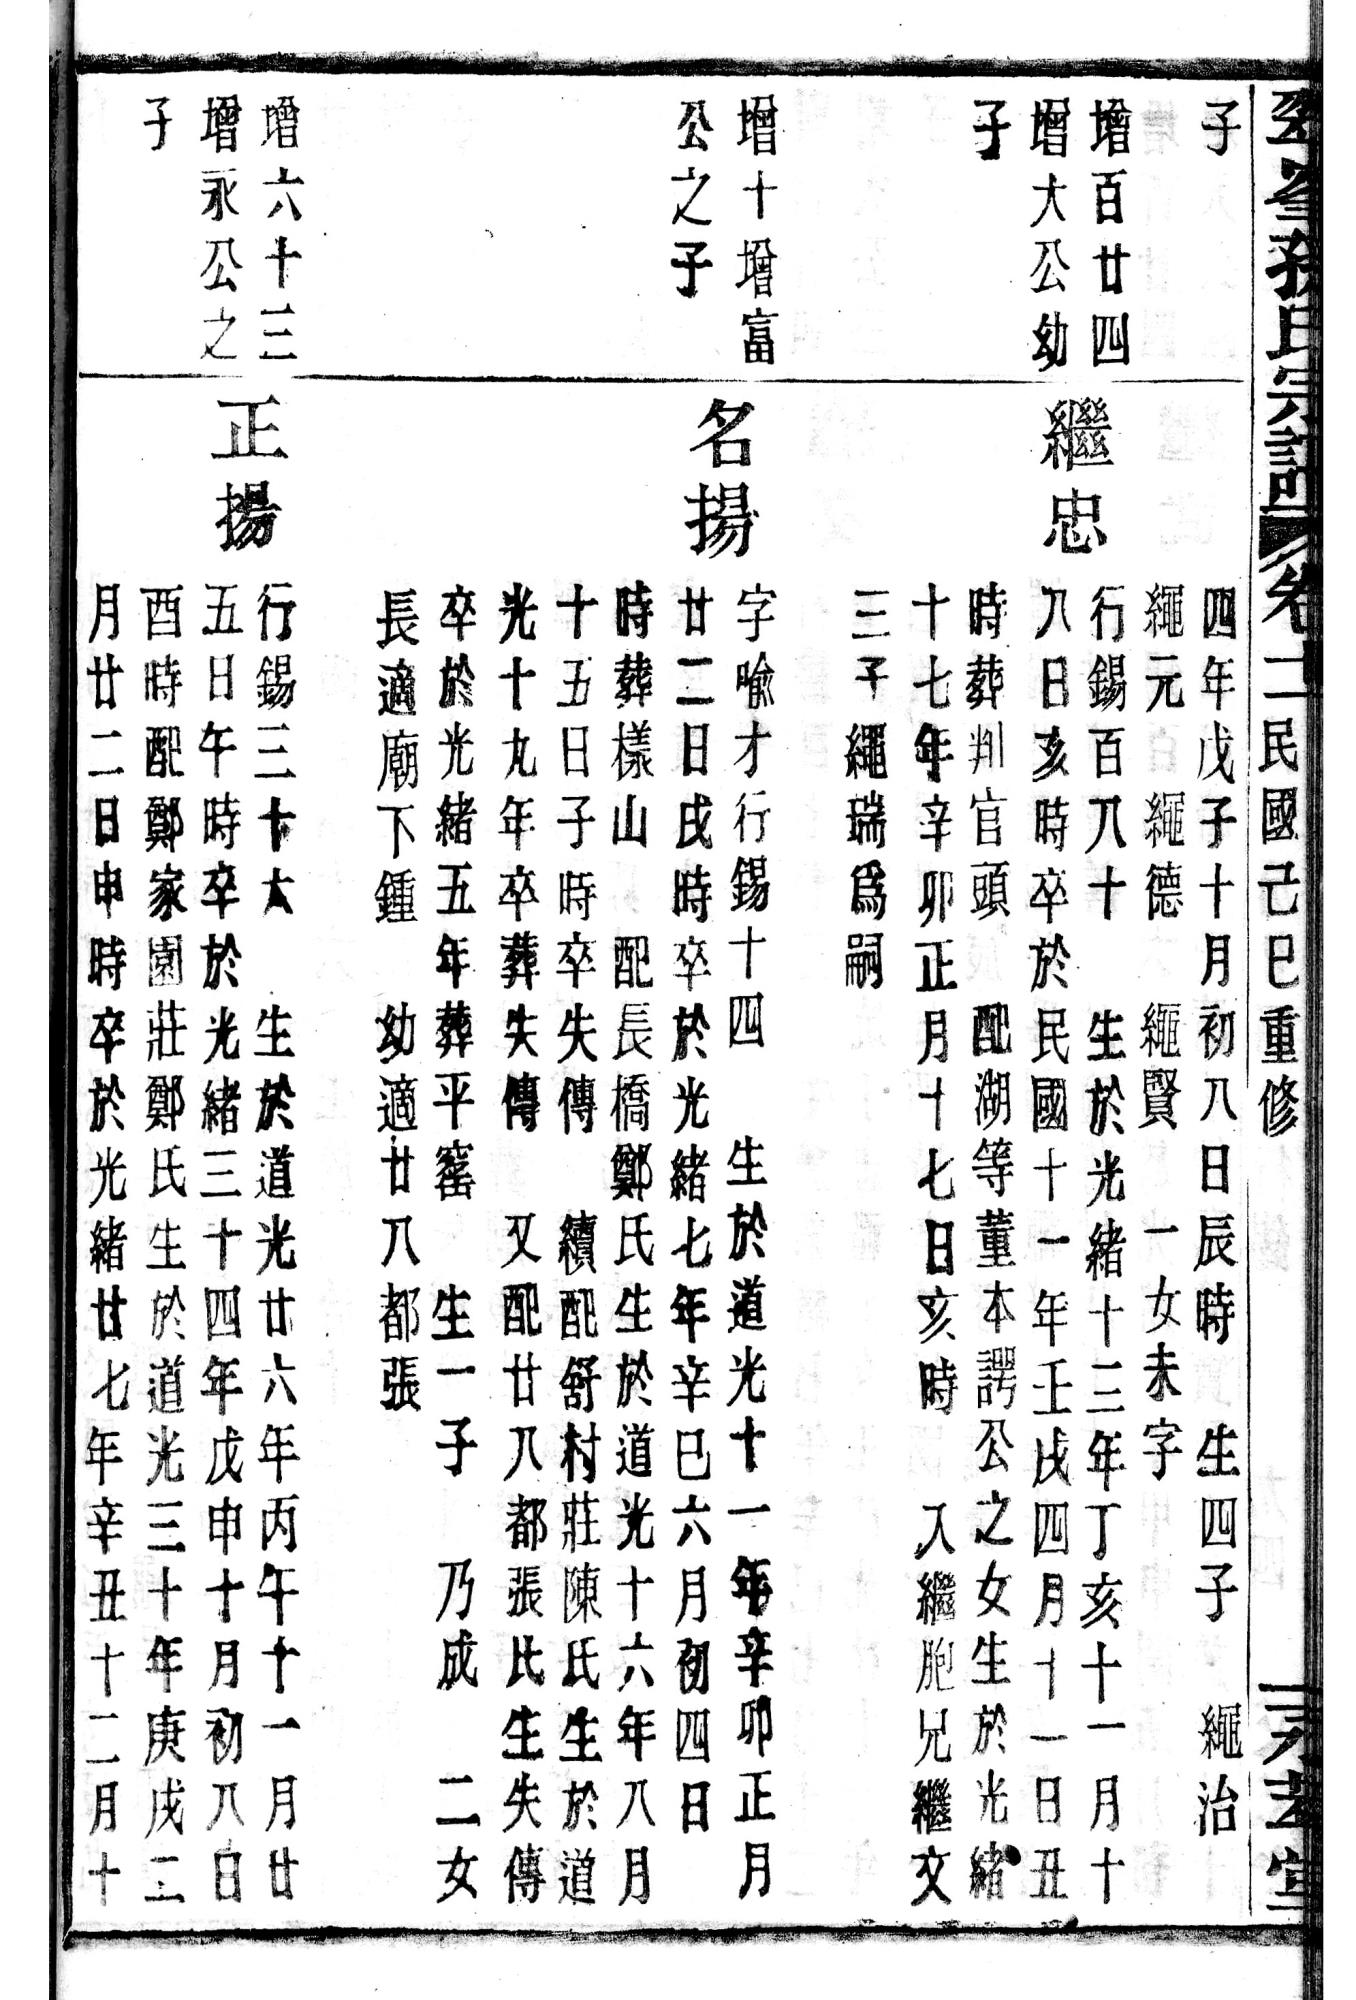 氏宗譜 卷十二 民國己巳重修
子
四年戊子十月初八日辰時 生四子 繩治
繩元 繩德 繩賢 一女未字
增百廿四
增大公幼
子
繼忠
行錫百八十 生於光緒十三年丁亥十一月十
八日亥時卒於民國十一年壬戌四月十一日丑
時葬判官頭 配湖等董本諤公之女生於光緒
十七年辛卯正月十七日亥時 入繼胞兄繼文
三子繩瑞爲嗣
增十增富
公之子
名揚
字喻才行錫十四 生於道光十一年辛卯正月
廿二日戌時卒於光緒七年辛巳六月初四日
時葬樣山 配長橋鄭氏生於道光十六年八月
十五日子時卒失傳 續配舒村莊陳氏生於道
光十九年卒葬失傳 又配廿八都張比生失傳
卒於光緒五年葬平窰 生一子 乃成 二女
長適廟下鍾 幼適廿八都張
增六十三
增永公之
子
正揚
行錫三十六 生於道光廿六年丙午十一月廿
五日午時卒於光緒三十四年戊申十月初八日
酉時配鄭家園莊鄭氏生於道光三十年庚戌二
月廿二日申時卒於光緒廿七年辛丑十二月十